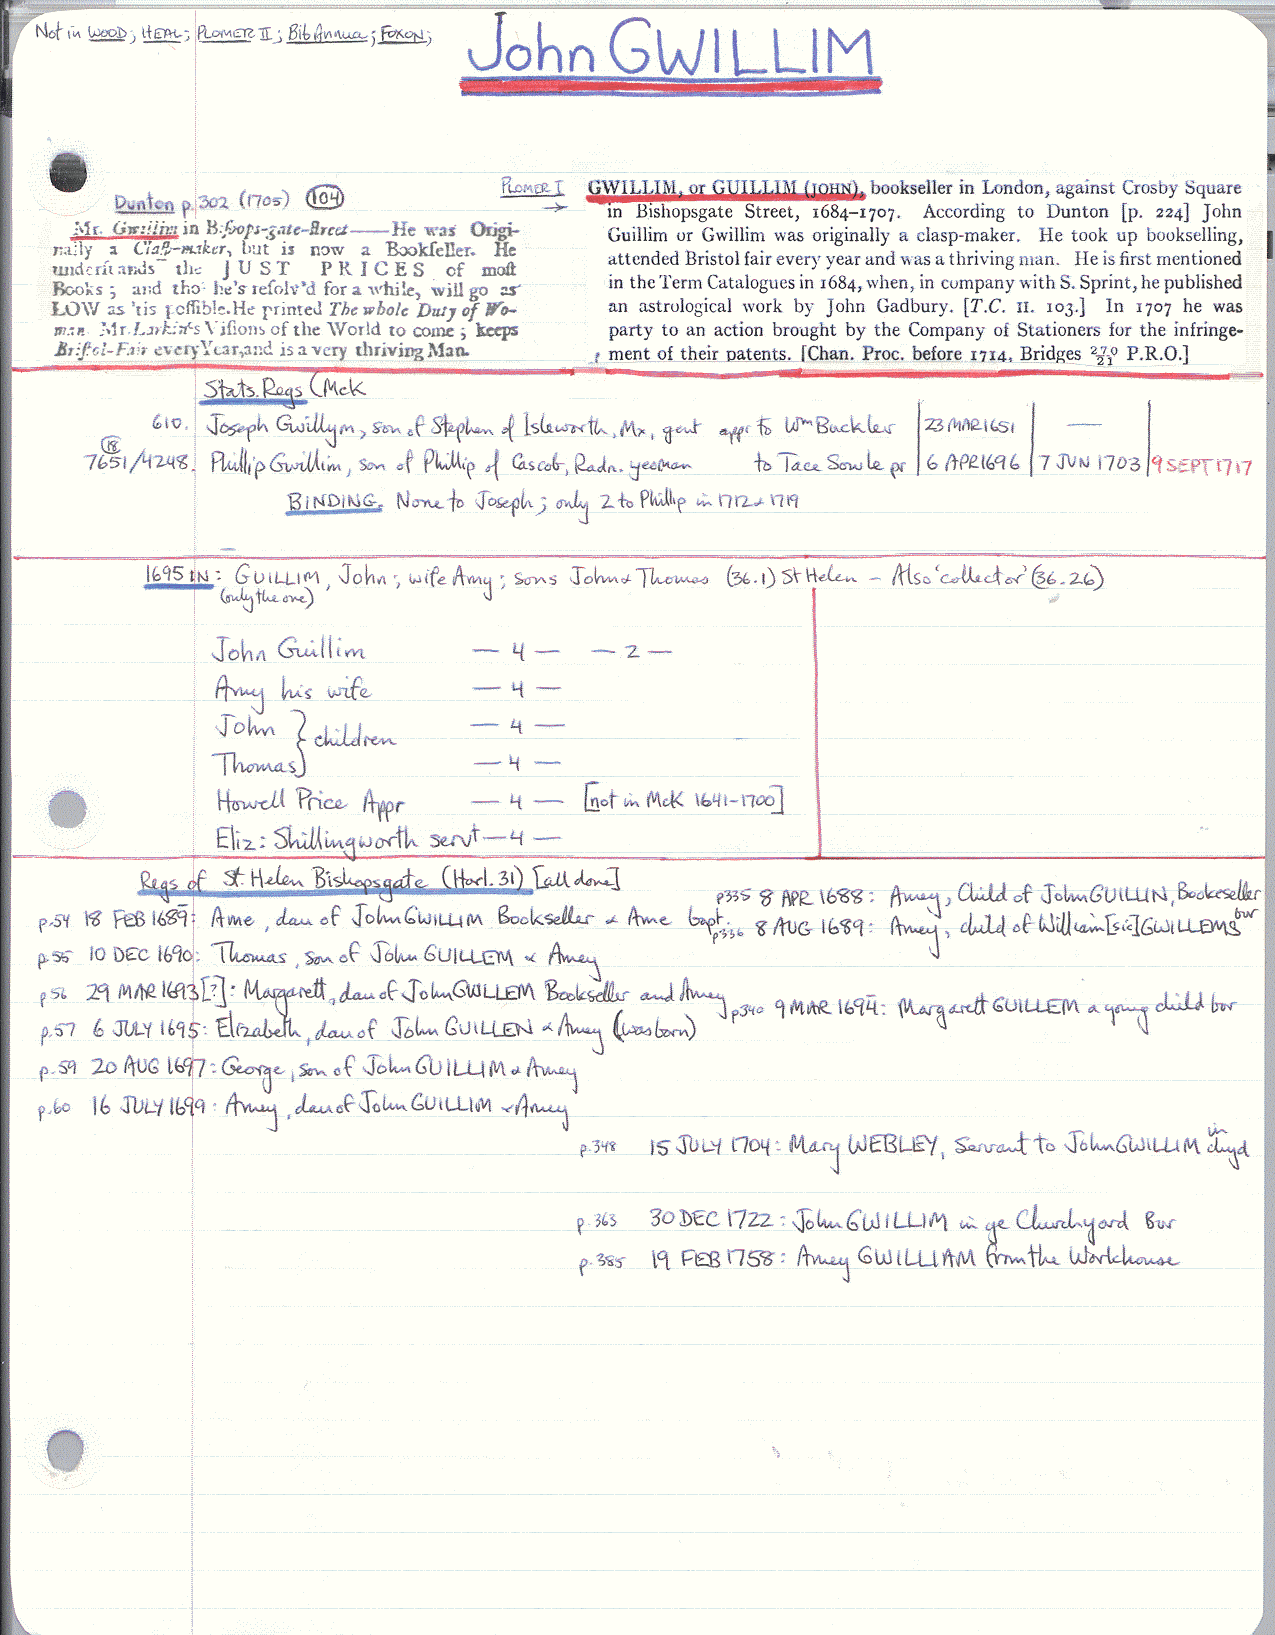 Not in WOOD; HEAL; PLOMER II; BibAnnua; FOXON;
John GWILLIM
Dunton p.302 (1705) (104)
Mr. Gwillim in Bishops-gate-street——He was Origi-
nally a Clasp-maker, but is now a Bookseller. He
understands the JUST PRICES of most
Books; and tho' he's resolv'd for a while, will go as
LOW as 'tis possible. He printed The whole Duty of Wo-
man. Mr. Larkin's Visions of the World to come; keeps
Bristol-Fair every Year, and is a very thriving Man.
PLOMER I →
GWILLIM, or GUILLIM (JOHN), bookseller in London, against Crosby Square
in Bishopsgate Street, 1684-1707. According to Dunton [p. 224] John
Guillim or Gwillim was originally a clasp-maker. He took up bookselling,
attended Bristol fair every year and was a thriving man. He is first mentioned
in the Term Catalogues in 1684, when, in company with S. Sprint, he published
an astrological work by John Gadbury. [T.C. II. 103.] In 1707 he was
party to an action brought by the Company of Stationers for the infringe-
ment of their patents. [Chan. Proc. before 1714, Bridges 270/21 P.R.O.]
Stats. Regs (McK
610. Joseph Gwillym, son of Stephen of Isleworth, Mx, gent appr to Wm Buckler | 23 MAR 1651 | — |
(18)
7651/4248. Phillip Gwillim, son of Phillip of Cascob, Radn. yeoman to Tace Sowle pr | 6 APR 1696 | 7 JUN 1703 | 9 SEPT 1717
BINDING. None to Joseph; only 2 to Phillip in 1712 & 1719
1695 IN: GUILLIM, John; wife Amy; sons John & Thomas (36.1) St Helen – Also 'collector' (36.26)
(only the one)
John Guillim — 4 — — 2 —
Amy his wife — 4 —
John } children — 4 —
Thomas } — 4 —
Howell Price Appr — 4 — [not in McK 1641-1700]
Eliz: Shillingworth servt — 4 —
Regs of St. Helen Bishopsgate (Harl. 31) [all done]
p335 8 APR 1688: Amey, Child of John GUILLIN, Bookeseller bur
p.54 18 FEB 1689: Ame, dau of John GWILLIM Bookseller & Ame bapt.
p336 8 AUG 1689: Amey, child of William [sic] GWILLEMS
p.55 10 DEC 1690: Thomas, son of John GUILLEM & Amey
p56 29 MAR 1693[?]: Margarett, dau of John GWLLEM Bookseller and Amey
p340 9 MAR 1694: Margarett GUILLEM a young child bur
p.57 6 JULY 1695: Elizabeth, dau of John GUILLEN & Amey (was born)
p.59 20 AUG 1697: George, son of John GUILLIM & Amey
p.60 16 JULY 1699: Amey, dau of John GUILLIM & Amey
p.348 15 JULY 1704: Mary WEBLEY, Servant to John GWILLIM in chyd
p.363 30 DEC 1722: John GWILLIM in ye Churchyard Bur
p.385 19 FEB 1758: Amey GWILLIAM from the Workhouse